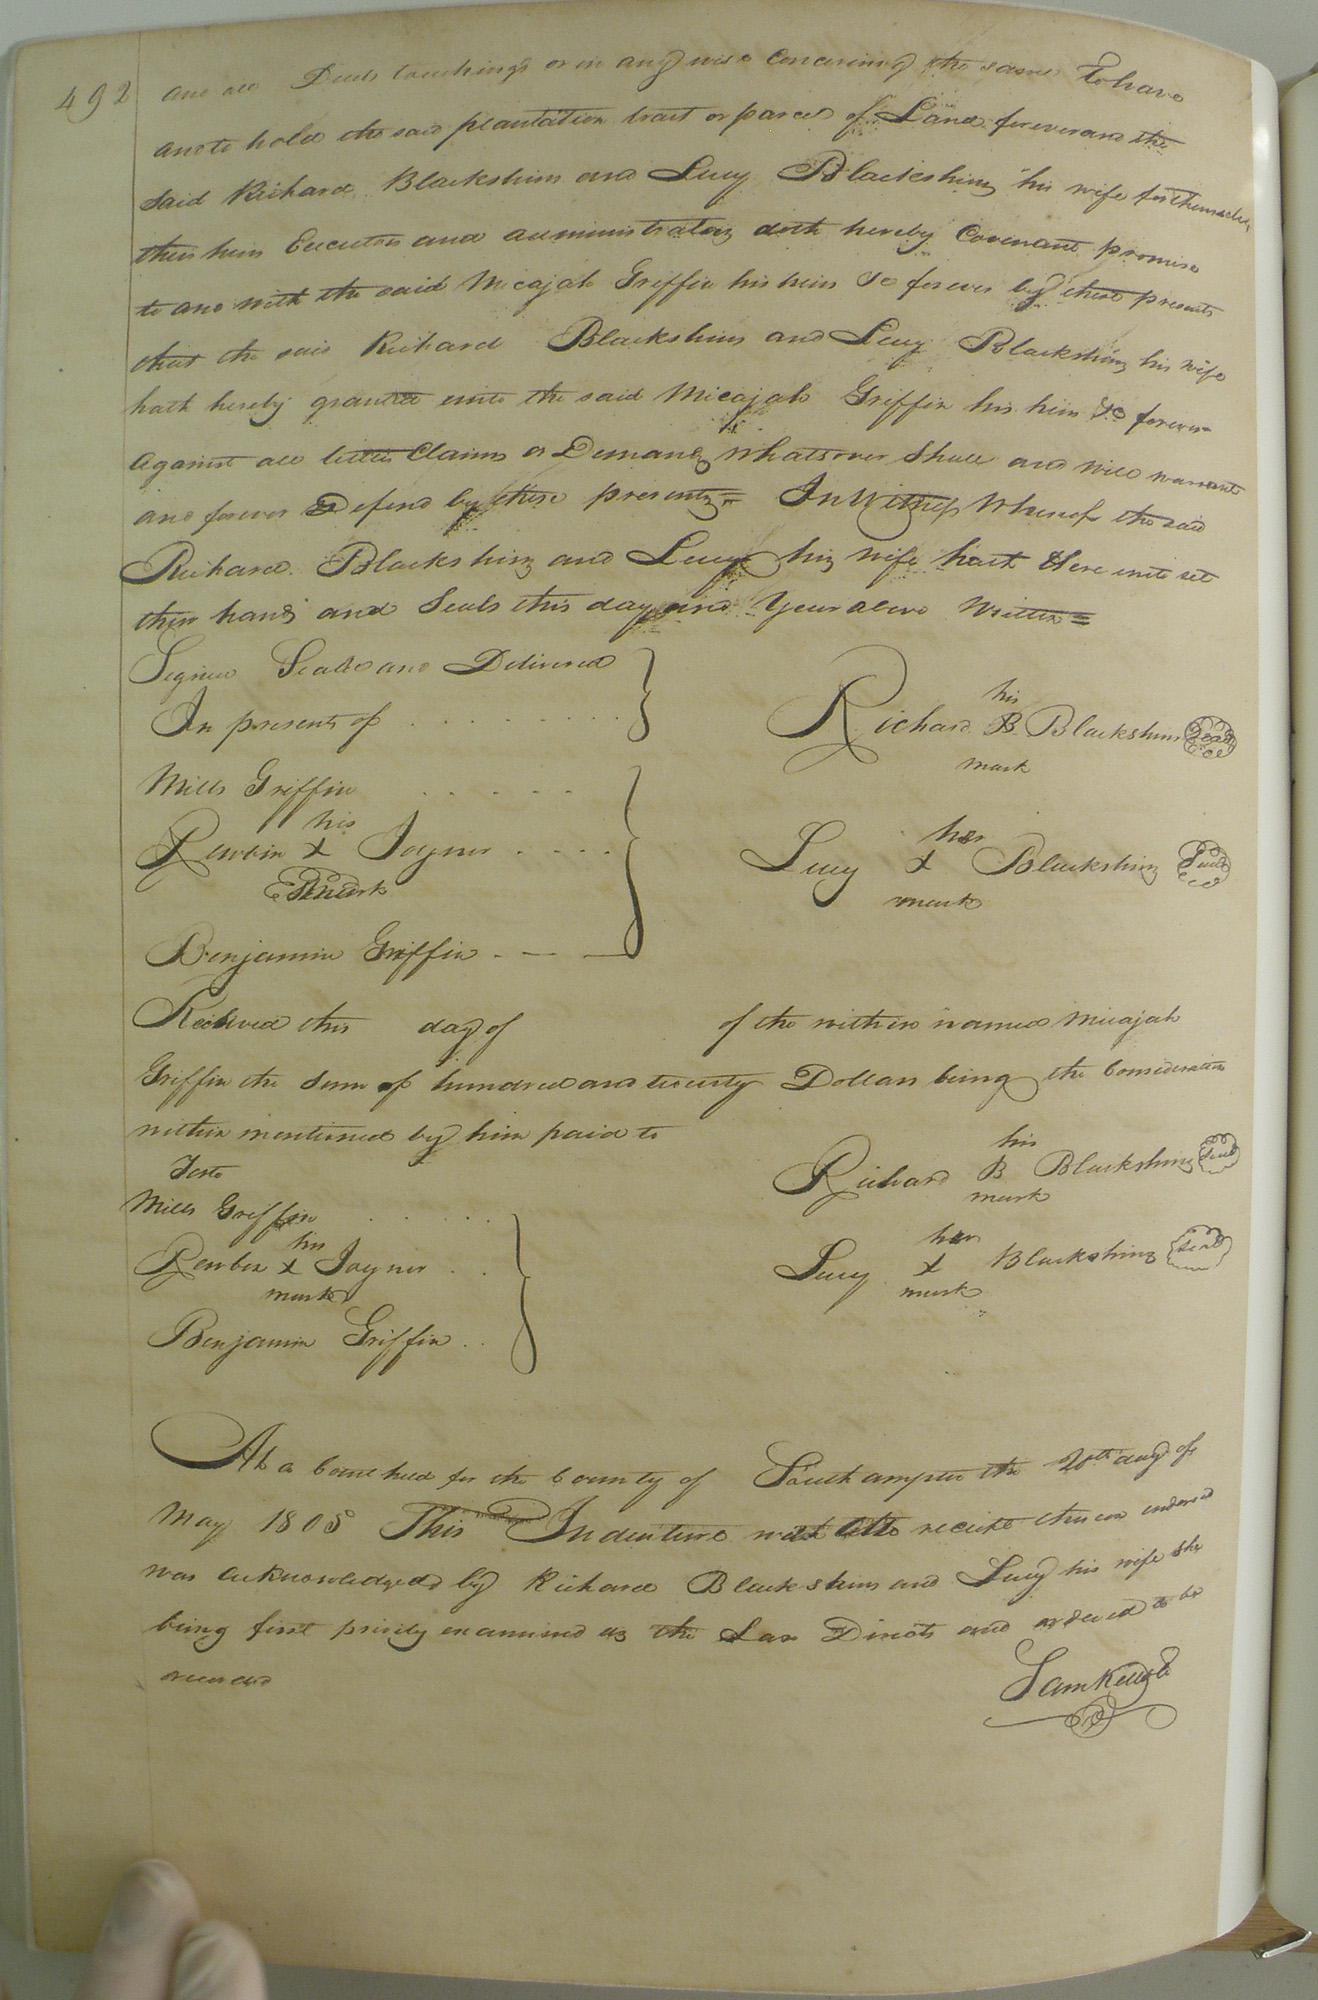 492
and all Deeds touchings or in any wise Concerning the same To have
and to hold the said plantation tract or parcel of Land forever and the
said Richard Blackshins and Lucy Blackshins his wife for themselves
their heirs Executors and administrators doth hereby Covenant promise
to and with the said Micajah Griffin his heirs &c forever by these presents
that the said Richard Blackshins and Lucy Blackshins his wife
hath hereby granted unto the said Micajah Griffin his heirs &c forever
Against all Claims or Demands Whatsoever Shall and Will warrant
and forever Defend by these presents = In Witness Whereof the said
Richard Blackshins and Lucy his wife hath Here unto set
their hands and Seals this day and Year above Written =
Signed Seald and Delivered
In presents of
his
Richard B Blackshins Seal
mark
Mills Griffin
his
Reubin X Joyner
mark
her
Lucy X Blackshins Seal
mark
Benjamin Griffin
Received this day of of the within named Micajah
Griffin the Sum of hundred and twenty Dollars being the Consideration
within mentioned by him paid to
Teste
his
Richard B Blackshins Seal
mark
Mills Griffin
his
Reuben X Joyner
mark
her
Lucy X Blackshins Seal
mark
Benjamin Griffin
At a Court held for the County of Southampton the 20th day of
May 1805 This Indenture with the receipt thereon endorsed
was acknowledged by Richard Blackshins and Lucy his wife she
being first privily examined as the Law Directs and ordered to be
recorded
Sam Kello